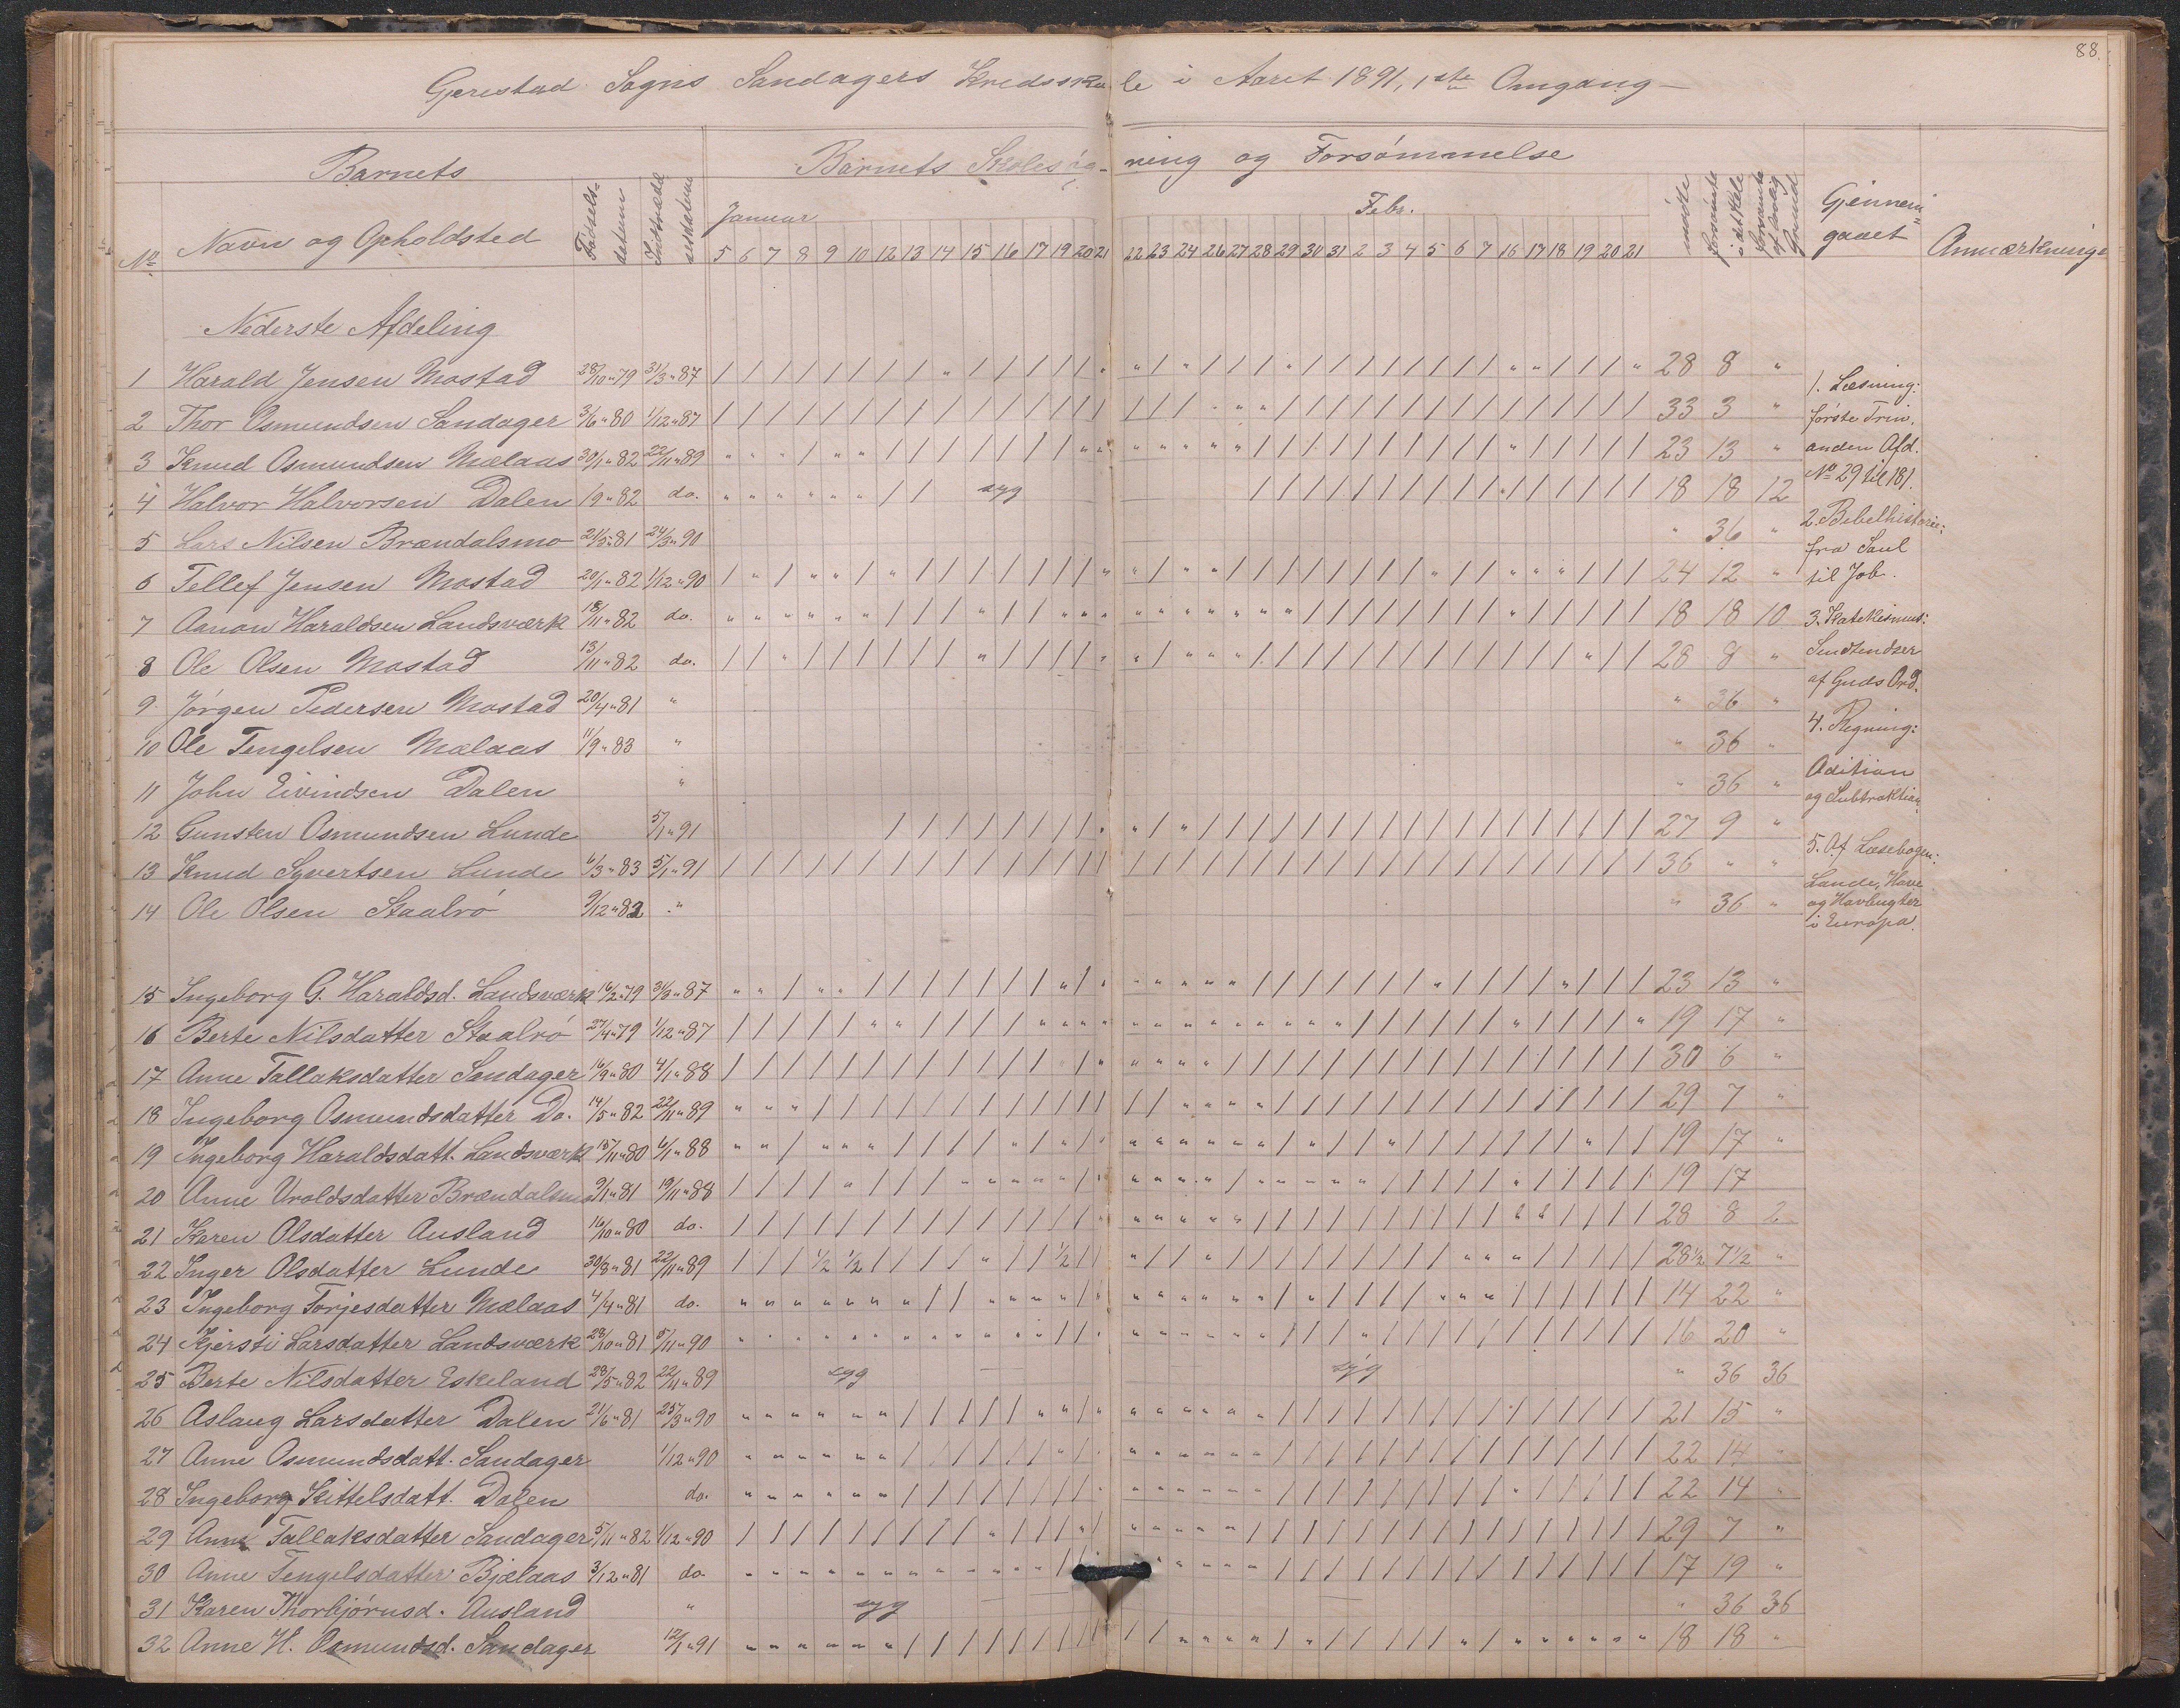 88
Gjerestad Sogns Sandagers Kredsskole i Aaret 1891, 1ste Omgang
Barnets
Barnets Skolesøgning og Forsømmelse
No Navn og Opholdsted Fødselsdatum Indtrædelsesdatum Januar Febr. mødte forsømte i det Hele forsømte af lovlig Grund Gjennemgaaet Anmærkninge
5 6 7 8 9 10 12 13 14 15 16 17 19 20 21 22 23 24 26 27 28 29 30 31 2 3 4 5 6 7 16 17 18 19 20 21
Nederste Afdeling
1 Harald Jensen Mostad 28/10 " 79 31/3 " 87 28 8 "
2 Thor Osmundsen Sandager 3/6 " 80 1/12 " 87 33 3 "
3 Knud Osmundsen Mælaas 30/1 " 82 22/11 " 89 23 13 "
4 Halvor Halvorsen Dalen 1/9 " 82 do. syg 18 18 12
5 Lars Nilsen Brændalsmo 21/5 " 81 24/3 " 90 " 36 "
6 Tellef Jensen Mostad 20/1 " 82 1/12 " 90 24 12 "
7 Aanon Haraldsen Landsværk 18/11 " 82 do. 18 18 10
8 Ole Olsen Mostad 13/11 " 82 do. 28 8 "
9 Jørgen Pedersen Mostad 20/4 " 81 " " 36 "
10 Ole Tengelsen Mælaas 11/9 " 83 " " 36 "
11 John Eivindsen Dalen " " 36 "
12 Gunsten Osmundsen Lunde 5/1 " 91 27 9 "
13 Knud Syvertsen Lunde 6/3 " 83 5/1 " 91 36 " "
14 Ole Olsen Staalrø 9/12 " 82 " " 36 "
15 Ingeborg G. Haraldsd. Landsværk 16/2 " 79 31/3 " 87 23 13 "
16 Berte Nilsdatter Staalrø 27/4 " 79 1/12 " 87 19 17 "
17 Anne Tallaksdatter Sandager 16/9 " 80 4/1 " 88 30 6 "
18 Ingeborg Osmundsdatter Do. 14/5 " 82 22/11 " 89 29 7 "
19 Ingeborg Haraldsdatt. Landsværk 15/11 " 80 6/1 " 88 19 17 "
20 Anne Uroldsdatter Brændalsmo 9/1 " 81 19/11 " 88 19 17
21 Karen Olsdatter Ausland 16/10 " 80 do. 28 8 2
22 Inger Olsdatter Lunde 30/8 " 81 22/11 " 89 1/2 1/2 1/2 28 1/2 7 1/2 "
23 Ingeborg Torjesdatter Mælaas 4/4 " 81 do. 14 22 "
24 Kjersti Larsdatter Landsværk 28/10 " 81 5/11 " 90 16 20 "
25 Berte Nilsdatter Eskeland 28/5 " 82 22/11 " 89 syg — — syg " 36 36
26 Aslaug Larsdatter Dalen 21/6 " 81 25/3 " 90 21 15 "
27 Anne Osmundsdatt. Sandager 1/12 " 90 22 14 "
28 Ingeborg Kittelsdatt. Dalen do. 22 14 "
29 Anne Tallaksdatter Sandager 5/11 " 82 1/12 " 90 29 7 "
30 Anne Tengelsdatter Bjælaas 3/12 " 81 do. 17 19 "
31 Karen Thorbjørnsd. Ausland " syg — — " 36 36
32 Anne H. Osmundsd. Sandager 12/1 " 91 18 18 "
1. Læsning:
første Trin.
anden Afd.
No 29 til 181.
2. Bibelhistorie:
fra Saul
til Job.
3. Katekismus:
Sendtendser
af Guds Ord.
4. Regning:
Adition
og Subtraktion
5. Af Læsebogen:
Lande, Have
og Havbugter
i Europa.